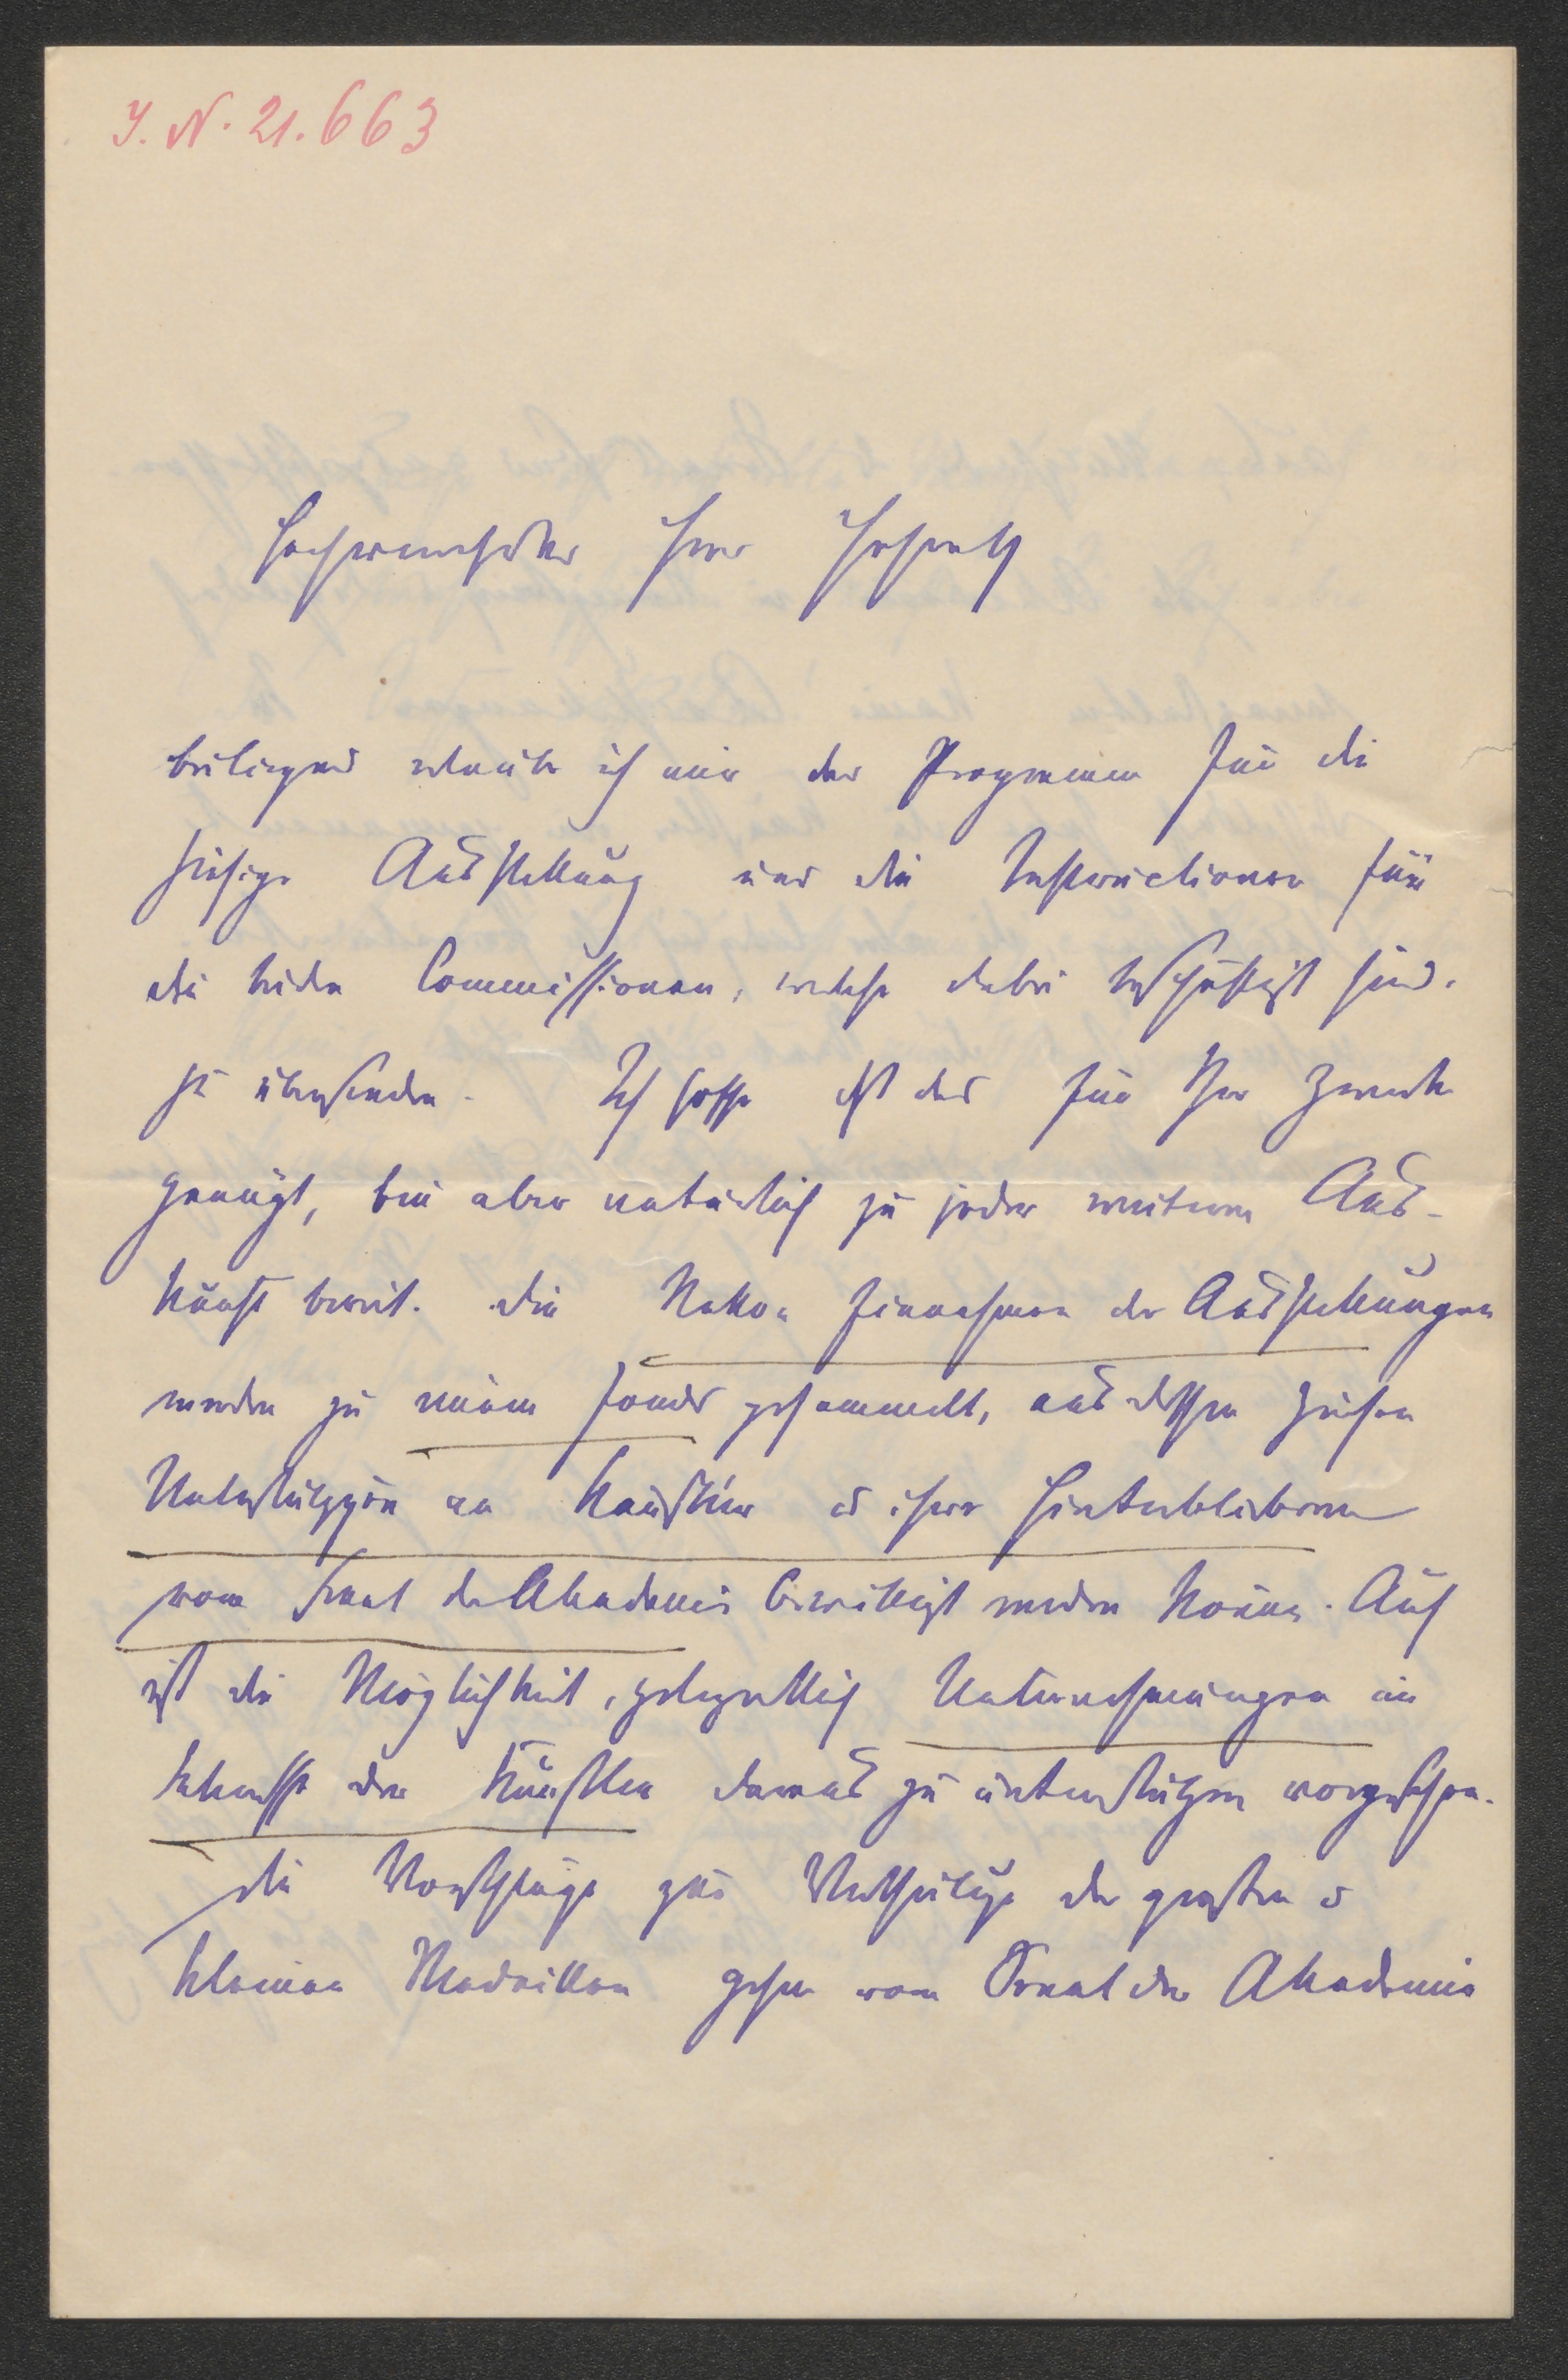 J. N. 21.663
Hochverehrter Herr Hofrath
beiliegend erlaube ich mir das Programm für die
hiesige Ausstellung und die Instructionen für
die beiden Commissionen, welche dabei beschäftigt sind,
zu übersenden. Ich hoffe daß das für Ihre Zwecke
genügt, bin aber natürlich zu jeder weiteren Aus-
kunft bereit. Die Netto Einnahmen der Ausstellungen
werden zu einem Fonds gesammelt, aus dessen Zinsen
Unterstützungen an Künstler u ihre Hinterbliebenen
vom Senat der Akademie bewilligt werden können. Auch
ist die Möglichkeit, gelegentlich Unternehmungen im
Interesse der Künstler daraus zu unterstützen vorgesehen.
Die Vorschläge zur Vertheilung der großen u
kleinen Medaillen gehen vom Senat der Akademie